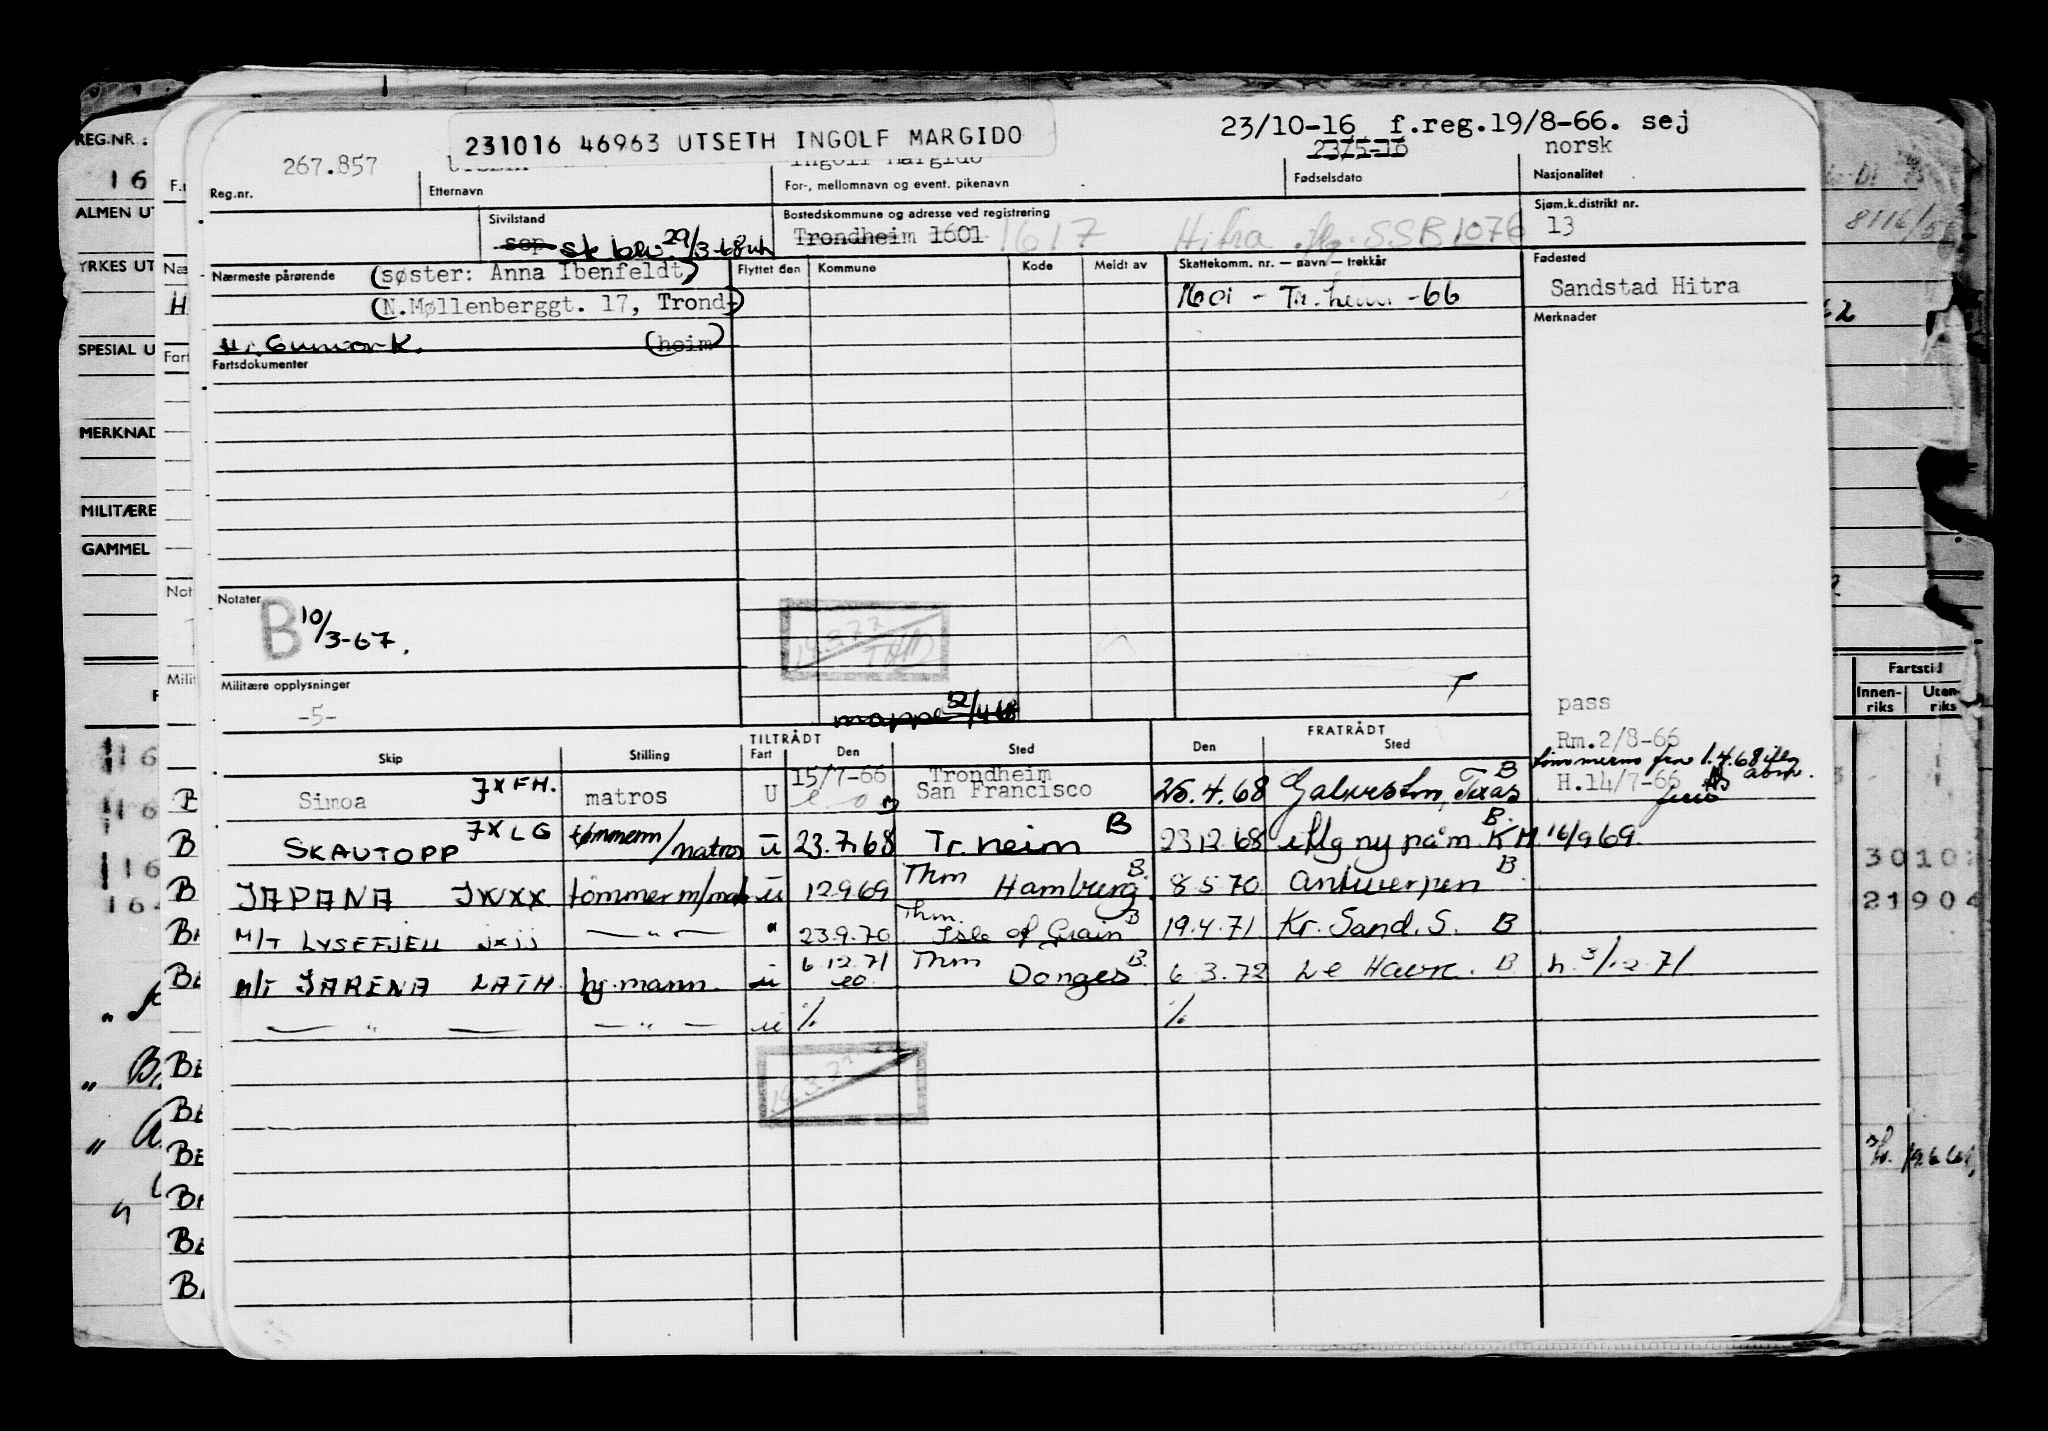 231016 46963 UTSETH INGOLF MARGIDO
23/10-16 f.reg.19/8-66. sej
267.857
Ingolf Margido
23/5-16
norsk
Reg.nr.
Etternavn
For-, mellomnavn og event. pikenavn
Fødselsdato
Nasjonalitet
Sivilstand
Bostedskommune og adresse ved registrering
Sjøm.k.distrikt nr.
sep
29/3-68
Trondheim 1601
1617 Hitra SSB 1076
13
Nærmeste pårørende
(søster: Anna Ibenfeldt)
Flyttet den
Kommune
Kode
Meldt av
Skattekomm. nr. — navn — trekkår
Fødested
(N.Møllenberggt. 17, Trond-)
1601 - Tr.heim -66
Sandstad Hitra
(heim)
Merknader
Fartsdokumenter
Notater
B 10/3-67.
14.3.77
Militære opplysninger
-5-
pass
TILTRÅDT
FRATRÅDT
Rm.2/8-66
Skip
Stilling
Fart
Den
Sted
Den
Sted
Simoa JXFH.
matros
U
15/7-66
Trondheim
San Francisco
25.4.68
Galveston, Texas B
H.14/7-66
SKAUTOPP JXLG
tømmerm/matros
u
23.7.68
Tr.heim B
23.12.68
iflg ny påm. KM 16/9 69.
JAPANA JWXX
tømmerm/mat
u
12.9.69
Thm Hamburg B.
8.5.70
Antwerpen B
M/T LYSEFJELL jxij
— " —
"
23.9.70
Thm. Isle of Grain B
19.4.71
Kr. Sand. S. B
M/T JARENA LATH
hj.mann.
u
6.12.71
Thm Donges B.
6.3.72
Le Havre. B
h. 3/12.71
— " —
— " —
u
%
%
14.3.77
REG.NR.:
16
ALMEN UT
YRKES UT
SPESIAL U
MERKNAD
MILITÆRE
GAMMEL
8116/
Fartstid
Innen-
riks
Uten-
riks
3010
21904